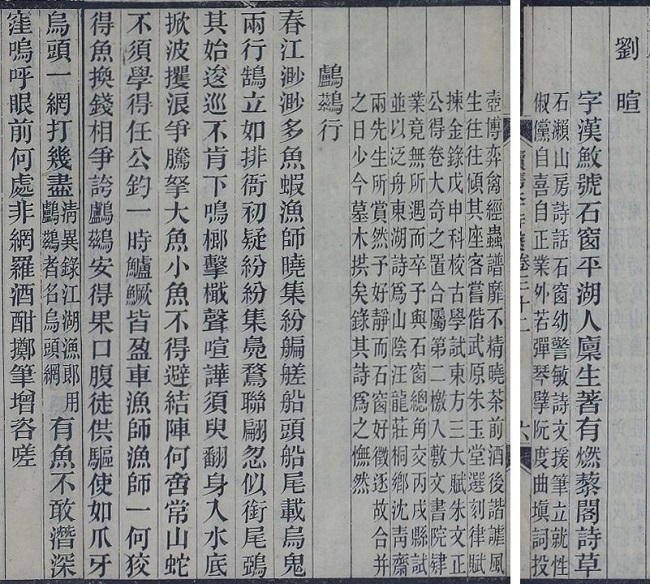 劉暄
字漢號石窗平湖人廩生著有燃藜閣詩草
石瀨山房詩話石窗幼警敏詩文援筆立就性
俶儻自喜自正業外若彈琴擘阮度曲塡詞投
卷二十二
六
壺博弈禽經蟲譜靡不精曉茶前酒後諧謔風
生往往傾其座客嘗偕武原朱玉堂選刻律賦
揀金錄戊申科校古學試東方三大賦朱文正
公得卷大奇之置合屬第二檄入敷文書院肄
業竟無所遇而卒予與石窗總角交丙戌縣試
並以泛舟東湖詩爲山陰汪龍莊桐鄉沈靑齋
兩先生所賞然予好靜而石窗好徵逐故合并
之日少今墓木拱矣錄其詩爲之憮然
鸕鷀行
春江渺渺多魚蝦漁師曉集紛艑艖船頭船尾載烏鬼
兩行鵠立如排衙初疑紛紛集鳧鶩聯翩忽似銜尾鴉
其始逡巡不肯下鳴榔擊檝聲喧譁須臾翻身入水底
掀波攫浪爭騰拏大魚小魚不得避結陣何啻常山蛇
不須學得任公釣一時鱸鱖皆盈車漁師漁師一何狡
得魚換錢相爭誇鸕鷀安得果口腹徒供驅使如爪牙
烏頭一網打幾盡淸異錄江湖漁郞用鸕鷀者名烏頭網有魚不敢潛深
窪嗚呼眼前何處非網羅酒酣擲筆增咨嗟